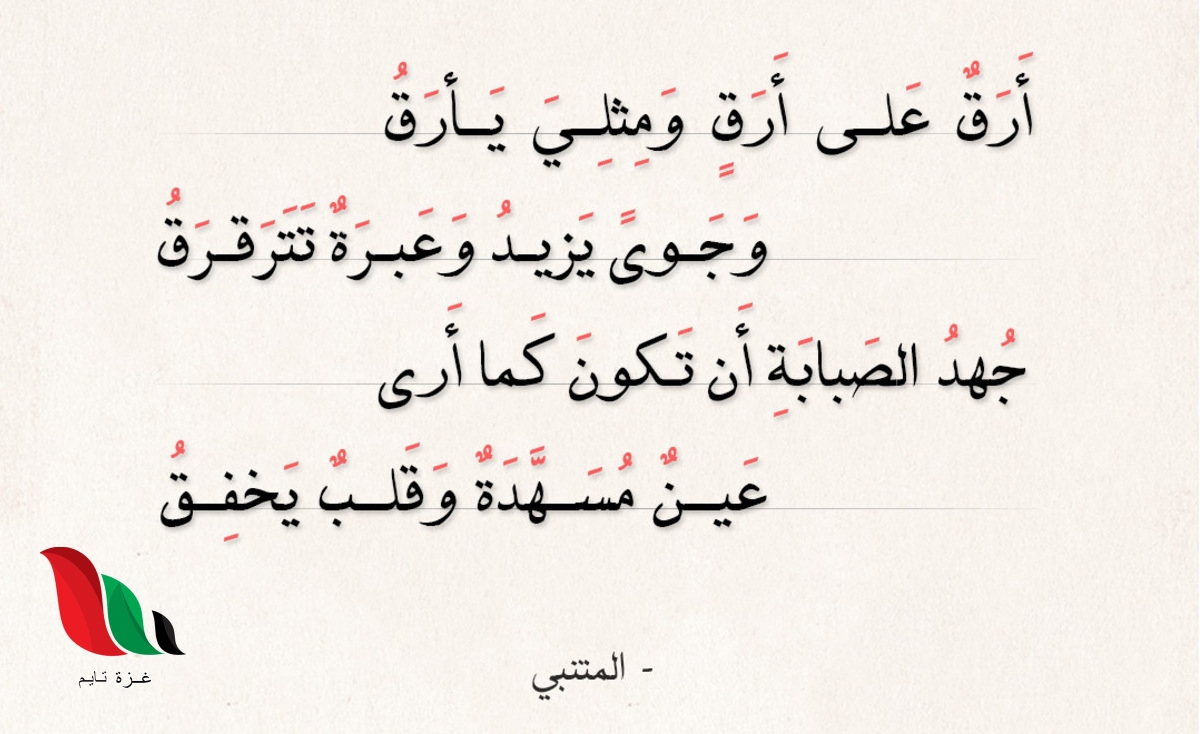 أَرَقٌ عَلى أَرَقٍ وَمِثلِيَ يَأرَقُ
وَجَوىً يَزيدُ وَعَبرَةٌ تَتَرَقرَقُ
جُهدُ الصَبابَةِ أَن تَكونَ كَما أَرى
عَينٌ مُسَهَّدَةٌ وَقَلبٌ يَخفِقُ
- المتنبي
غزة تايم